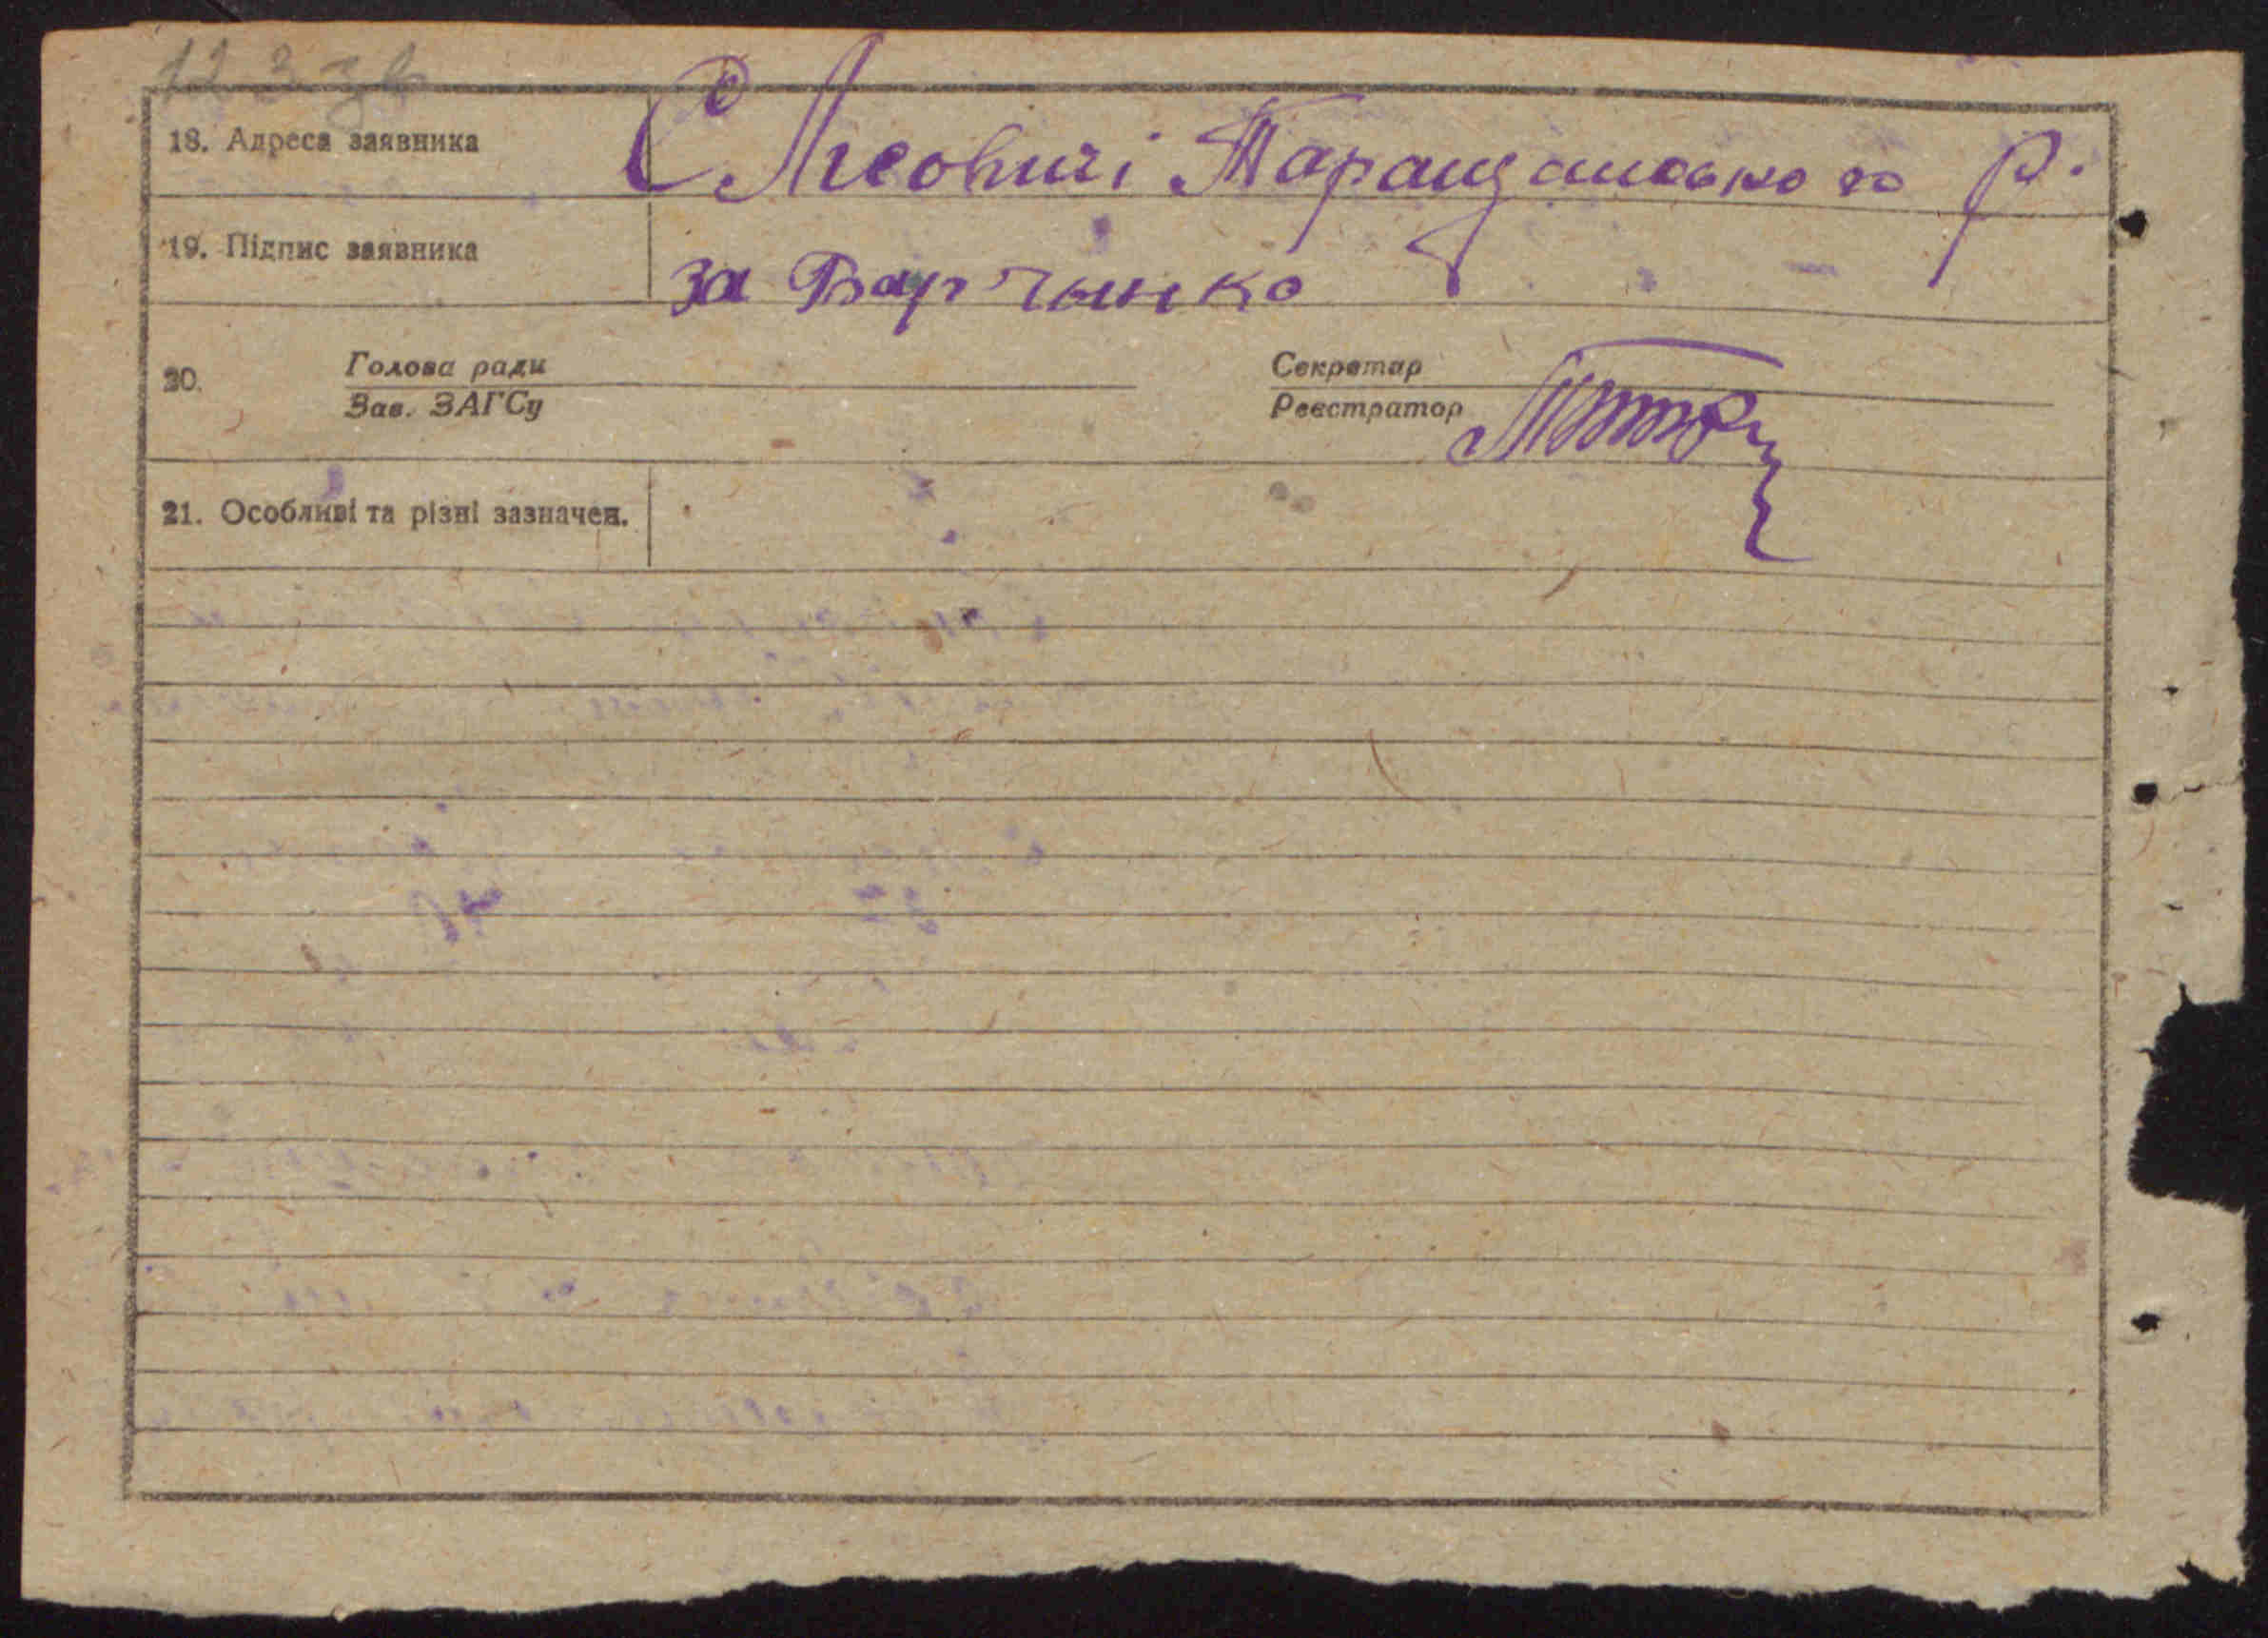 18. Адреса заявника С Лісовичі Таращанського р.
19. Підпис заявника за Барченко
20. Голова ради Секретар
Зав. ЗАГСу Реєстратор
21. Особливі та різні зазначен.